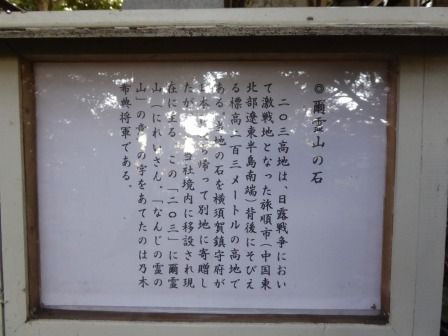 ◎爾霊山の石
二〇三高地は、日露戦争におい
て激戦地となった旅順市(中国東
北部遼東半島南端)背後にそびえ
る標高二百三メートルの高地で
ある。当地の石を横須賀鎮守府が
日本に持ち帰って別地に寄贈し
たが、当社境内に移設され現
在に至る。この「二〇三」に爾霊
山(にれいさん、「なんじの霊の
山」の意)の字をあてたのは乃木
希典将軍である。